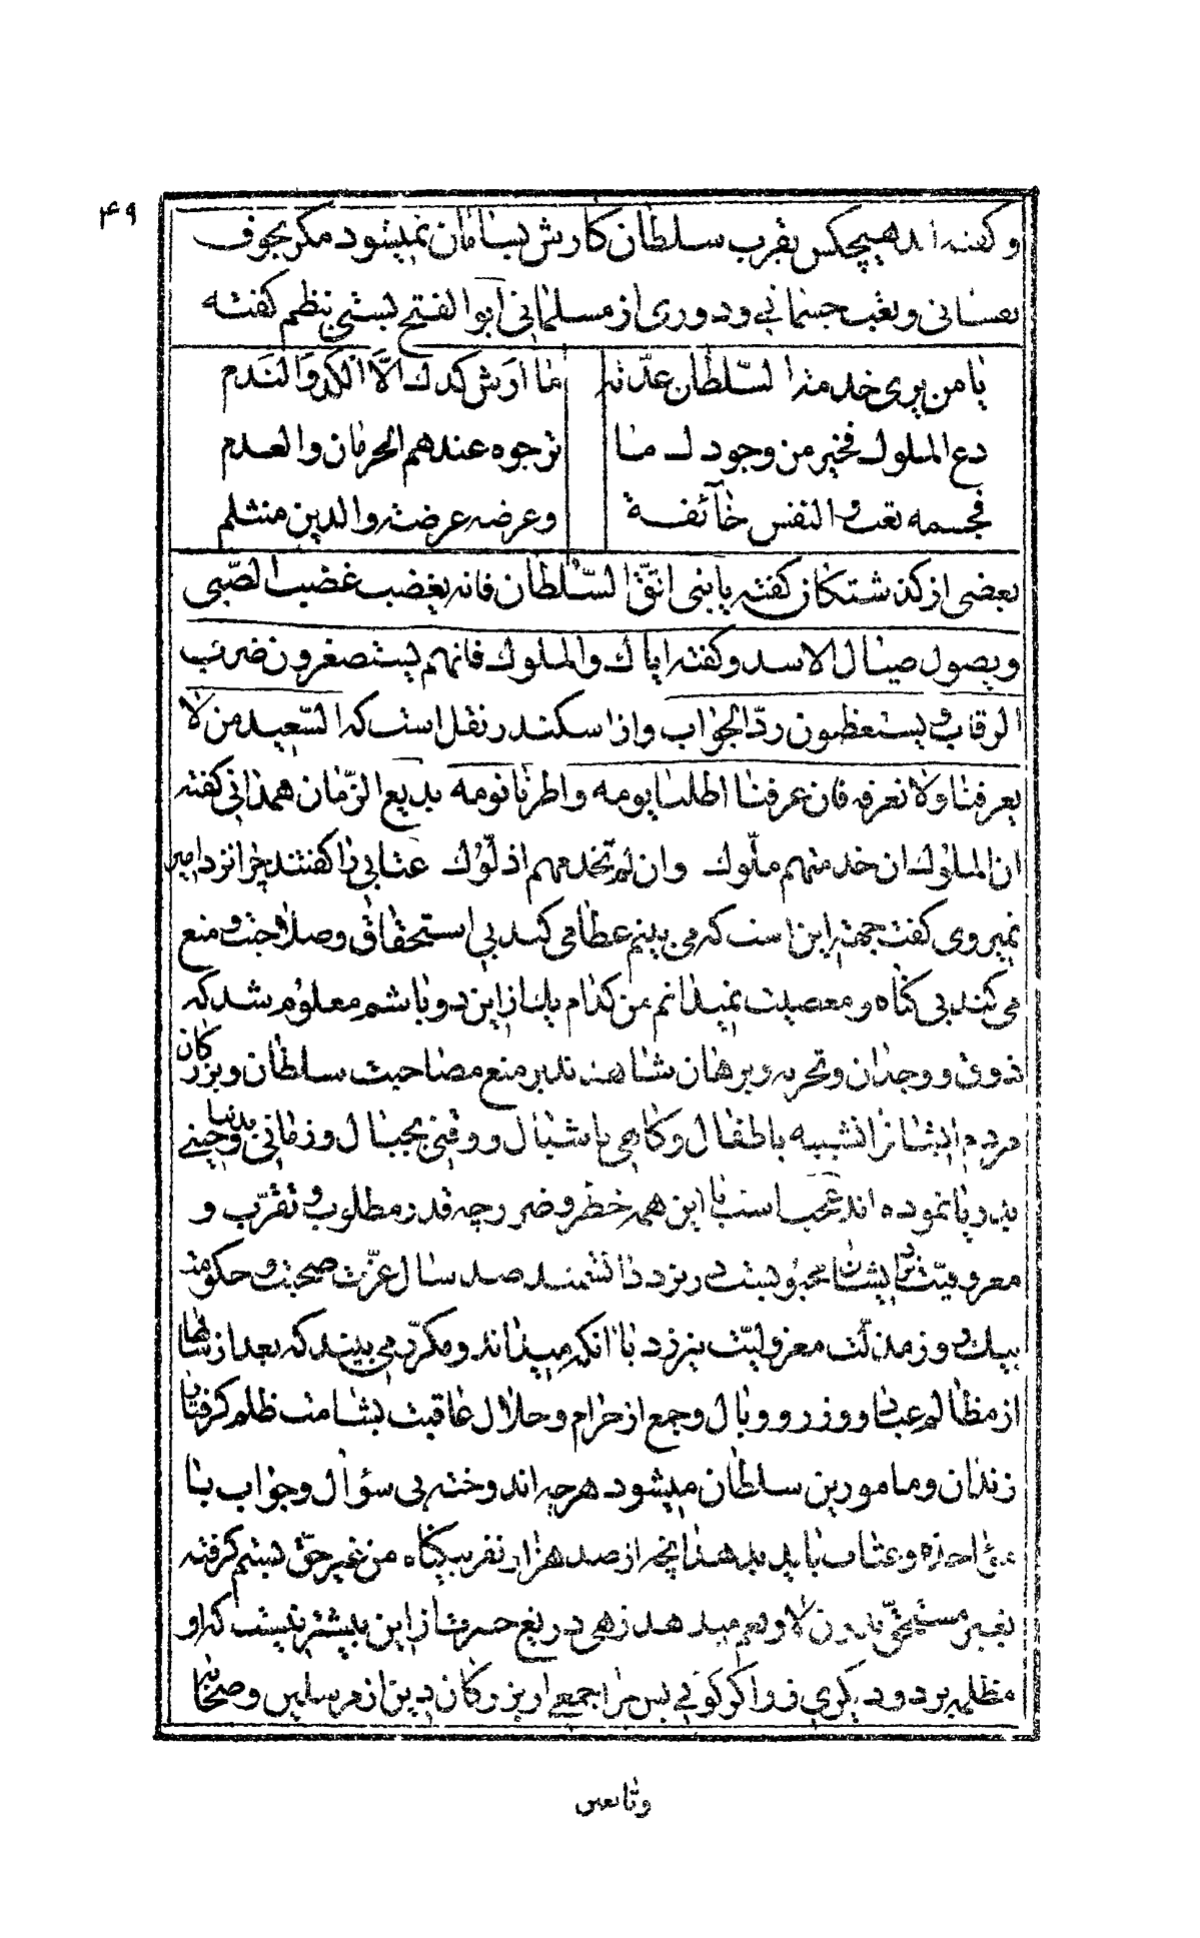 ۴۹
و گفته اند هیچکس بقرب سلطان کارش بسامان نمیشود مگر بخوف
نفسانی و تعب جسمانی و دوری از مسلمانی ابوالفتح بستی بنظم گفته
یا من یری خدمة السّلطان عدّته ما ارش کدك الّا الکدّ و الندم
دع الملوك فخیر من وجودك ما ترجوه عندهم الحرمان والعدم
فجسمه تعب و النفس خآئفة وعرضه عرضة والدین منثلم
بعضی از گذشتگان گفته یا بنی اتّق السّلطان فانه یغضب غضب الصّبی
و یصول صیال الاسد و گفته ایاك والملوك فانهم یستصغرون ضرب
الرقاب و یستعظمون ردّ الجواب و از اسکندر نقل است که السّعید من لا
یعرفنا ولا نعرفه فان عرفنا اطلنا یومه و اطرنا نومه بدیع الزّمان همدانی گفته
ان الملوك ان خدمتهم ملّوك وان لم تخدمهم اذلّوك عتابی را گفتند چرا نزد امیر
نمیروی گفت جهة این است که می بینم عطا می کند بی استحقاق و صلاحیت و منع
می کند بی گناه و معصیت نمیدانم من کدام یك از این دو باشم معلوم شد که
ذوق و وجدان و تجربه و برهان شاهدند بر منع مصاحبت سلطان و بزرگان
مردم ایشانرا تشبیه باطفال و گاهی باشبال و وقتی بجبال و زمانی بدنیا و حینی
بدریا نموده اند عجب است با این همه خطر و ضرر چه قدر مطلوب و تقرّب و
معروفیّت نزد ایشان محبوبست در نزد دانشمند صد سال عزّت صحبت و حکومت
بیك روز مذلّت معزولیّت نیرزد با آنکه میدانند و مکرّر می بینند که بعد از سالها
از مظالم عباد و وزر و وبال و جمع از حرام و حلال عاقبت بشامت ظلم گرفتار
زندان و مامورین سلطان میشود هرچه اندوخته بی سؤال و جواب با
مؤاخذه و عتاب باید بدهد آنچه از صد هزار نفر بیگناه من غیر حقّ بستم گرفته
بغیر مستحقّ بدون لا و نعم میدهد زهی دریغ حسرت از این بیشتر نیست که او
مظلمه برد و دیگری زر اگر گوئی پس چرا جمعی از بزرگان دین از مرسلین و صحابه
وتابعین